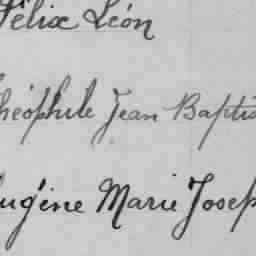 Félix Léon
Théophile Jean Baptis
Eugène Marie Josep